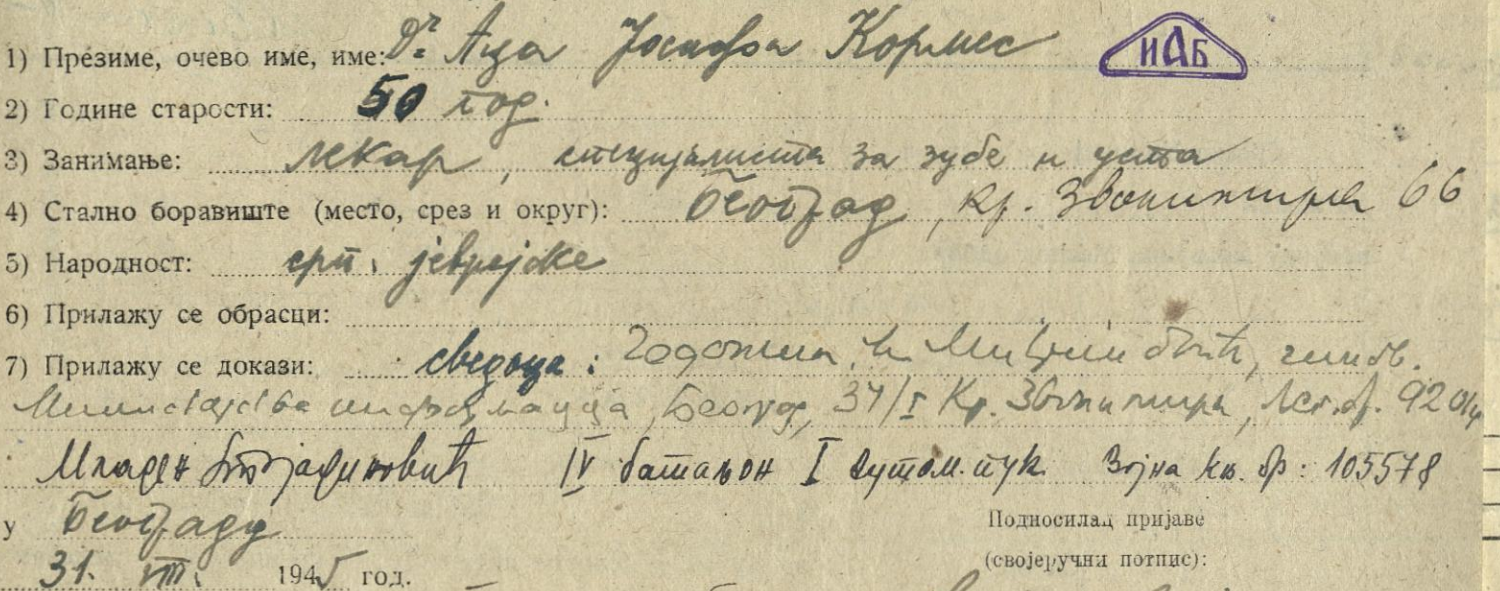 1) Презиме, очево име, име: Др Аца Јосифа Кормес
ИАБ
2) Године старости: 50 год.
3) Занимање: лекар, специјалиста за зубе и уста
4) Стално боравиште (место, срез и округ): Београд, Кр. Звонимира 66
5) Народност: срп. јеврејске
6) Прилажу се обрасци:
7) Прилажу се докази: сведоци:
Министарства информација, Београд, 34/I Кр. Звонимира,
Младен Стојадиновић IV батаљон I аутом. пук. Војна књ. бр: 105578
у Београду
Подносилац пријаве
(својеручни потпис):
31. VIII. 1945 год.